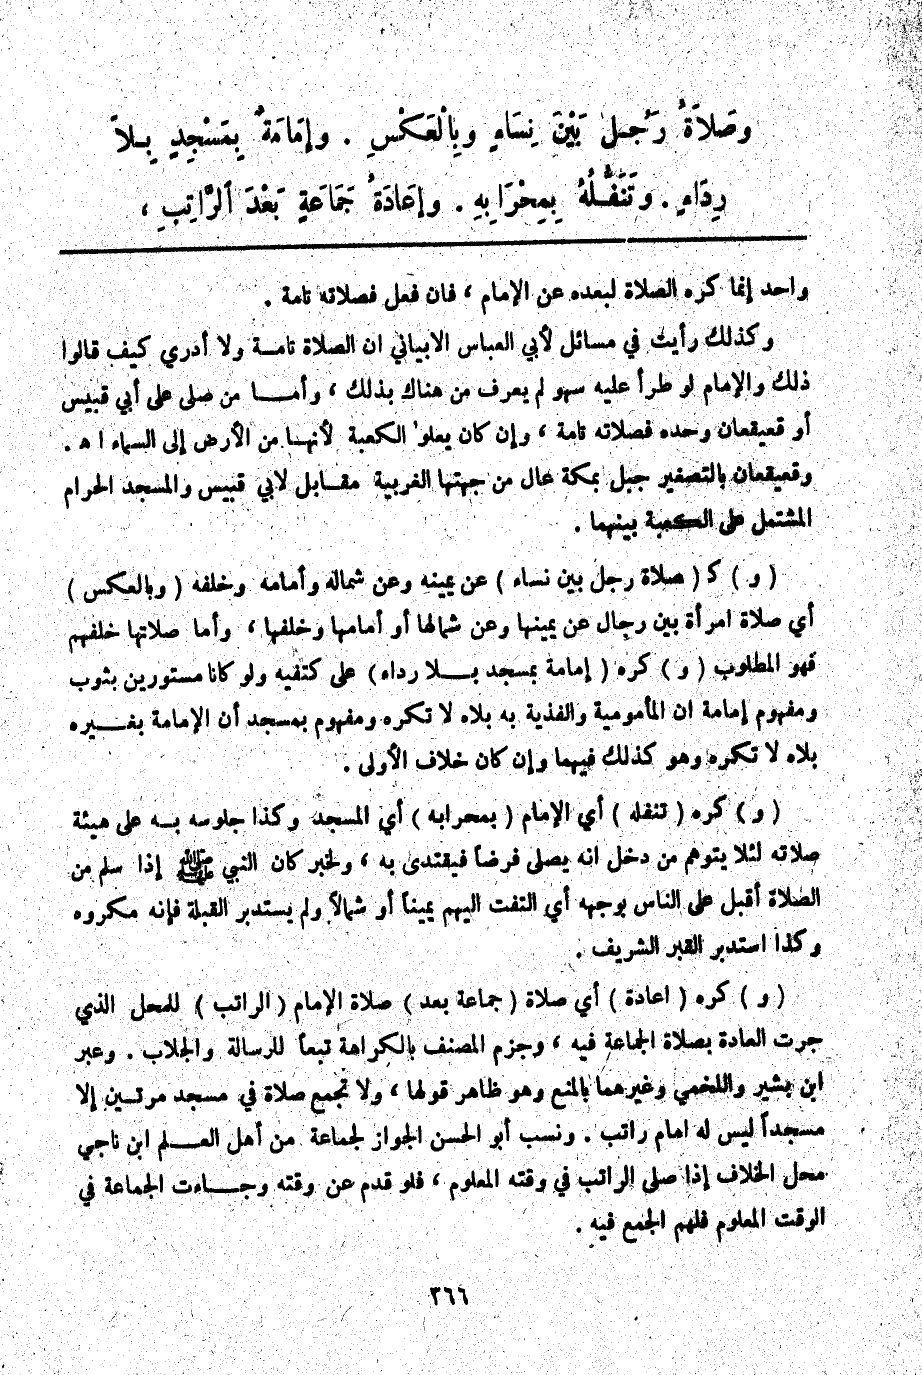 وَصَلاَةُ رَجُلٍ بَيْنَ نِسَاءٍ وبِالْعَكْسِ . وإِمَامَةٌ بِمَسْجِدٍ بِلاَ
رِدَاءٍ . وتَنَفُّلُهُ بِمِحْرَابِهِ . وإِعَادَةُ جَمَاعَةٍ بَعْدَ اَلرَّاتِبِ ،
واحد إنما كره الصلاة لبعده عن الإمام ، فان فعل فصلاته تامة .
وكذلك رأيت في مسائل لأبي العباس الابياني ان الصلاة تامـة ولا أدري كيف قالوا
ذلك والإمام لو طرأ عليه سهو لم يعرف من هناك بذلك ، وأمـــا من صلى على أبي قبيس
أو قعيقعان وحده فصلاته تامة ، وإن كان يعلو الكعبة لأنهـا من الأرض إلى السماء ا ه .
وقعيقعان بالتصغير جبل بمكة عال من جهتها الغربية مقـابل لابي قبيس والمسجد الحرام
المشتمل على الكعبة بينهما .
( و ) كـ ( صلاة رجل بين نساء ) عن يمينه وعن شماله وأمامه وخلفه ( وبالعكس )
أي صلاة امرأة بين رجال عن يمينها وعن شمالها أو أمامها وخلفها ، وأما صلاتها خلفهم
فهو المطلوب ( و ) كره ( إمامة بمسجد بـــلا رداء ) على كتفيه ولو كانا مستورين بثوب
ومفهوم إمامة ان المأمومية والفذية به بلاه لا تكره ومفهوم بمسجد أن الإمامة بغـــيره
بلاه لا تكره وهو كذلك فيهما وإن كان خلاف الأولى .
( و ) كره ( تنفله ) أي الإمام ( بمحرابه ) أي المسجد وكذا جلوسه بـه على هيئة
صلاته لئلا يتوهم من دخل انه يصلى فرضاً فيقتدى به ، ولخبر كان النبي ﷺ إذا سلم من
الصلاة أقبل على الناس بوجهه أي التفت اليهم يميناً أو شمالاً ولم يستدبر القبلة فإنه مكروه
وكذا استدبر القبر الشريف .
( و ) كره ( اعادة ) أي صلاة ( جماعة بعد ) صلاة الإمام ( الراتب ) للمحل الذي
جرت العادة بصلاة الجماعة فيه ، وجزم المصنف بالكراهة تبعاً للرسالة والجلاب . وعبر
ابن بشير واللخمي وغيرهما بالمنع وهو ظاهر قولها ، ولا تجمع صلاة في مسجد مرتـين إلا
مسجداً ليس له امام راتب . ونسب أبو الحسن الجواز لجماعة من أهل العـــلم ابن ناجي
محل الخلاف إذا صلى الراتب في وقته المعلوم ، فلو قدم عن وقته وجـــاءت الجماعة في
الوقت المعلوم فلهم الجمع فيه .
٣٦٦